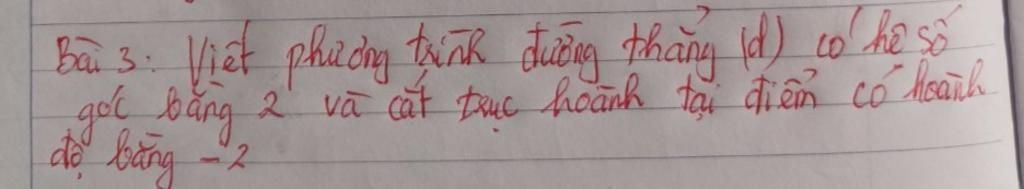 Bài 3: Viết phương trình đường thẳng (d) có hệ số
góc bằng 2 và cắt trục hoành tại điểm có hoành
độ bằng -2